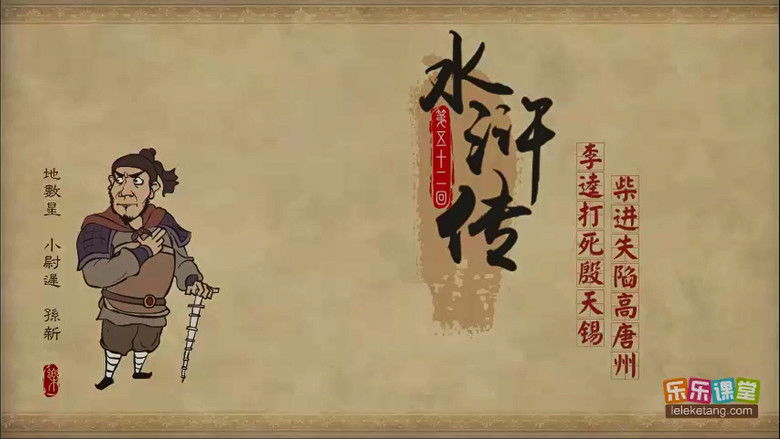 水浒传
第五十二回
李逵打死殷天锡
柴进失陷高唐州
地數星
小尉遲
孫新
乐乐课堂
leleketang.com